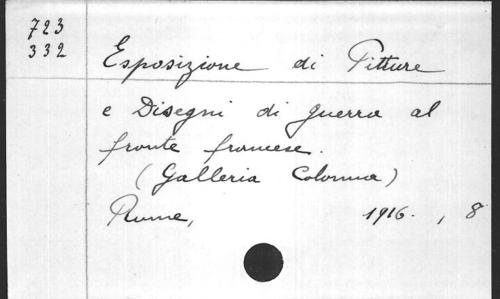 723
332
Esposizione di Pitture
e Disegni di guerra al
fronte francese.
(Galleria Colonna)
Rome, 1916. , 8